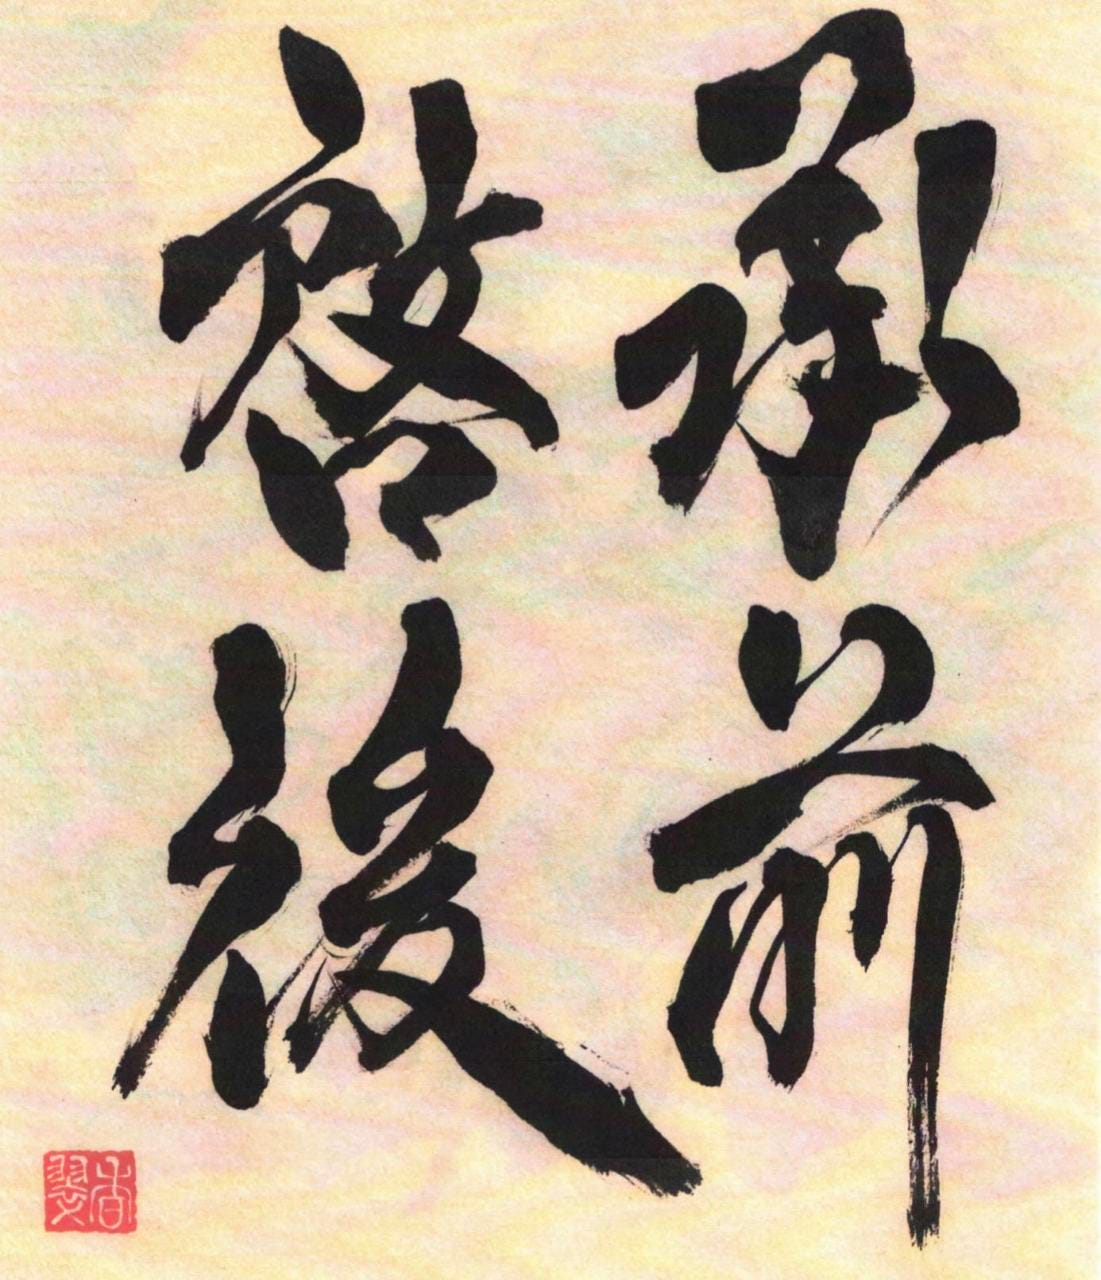 承前
啓後